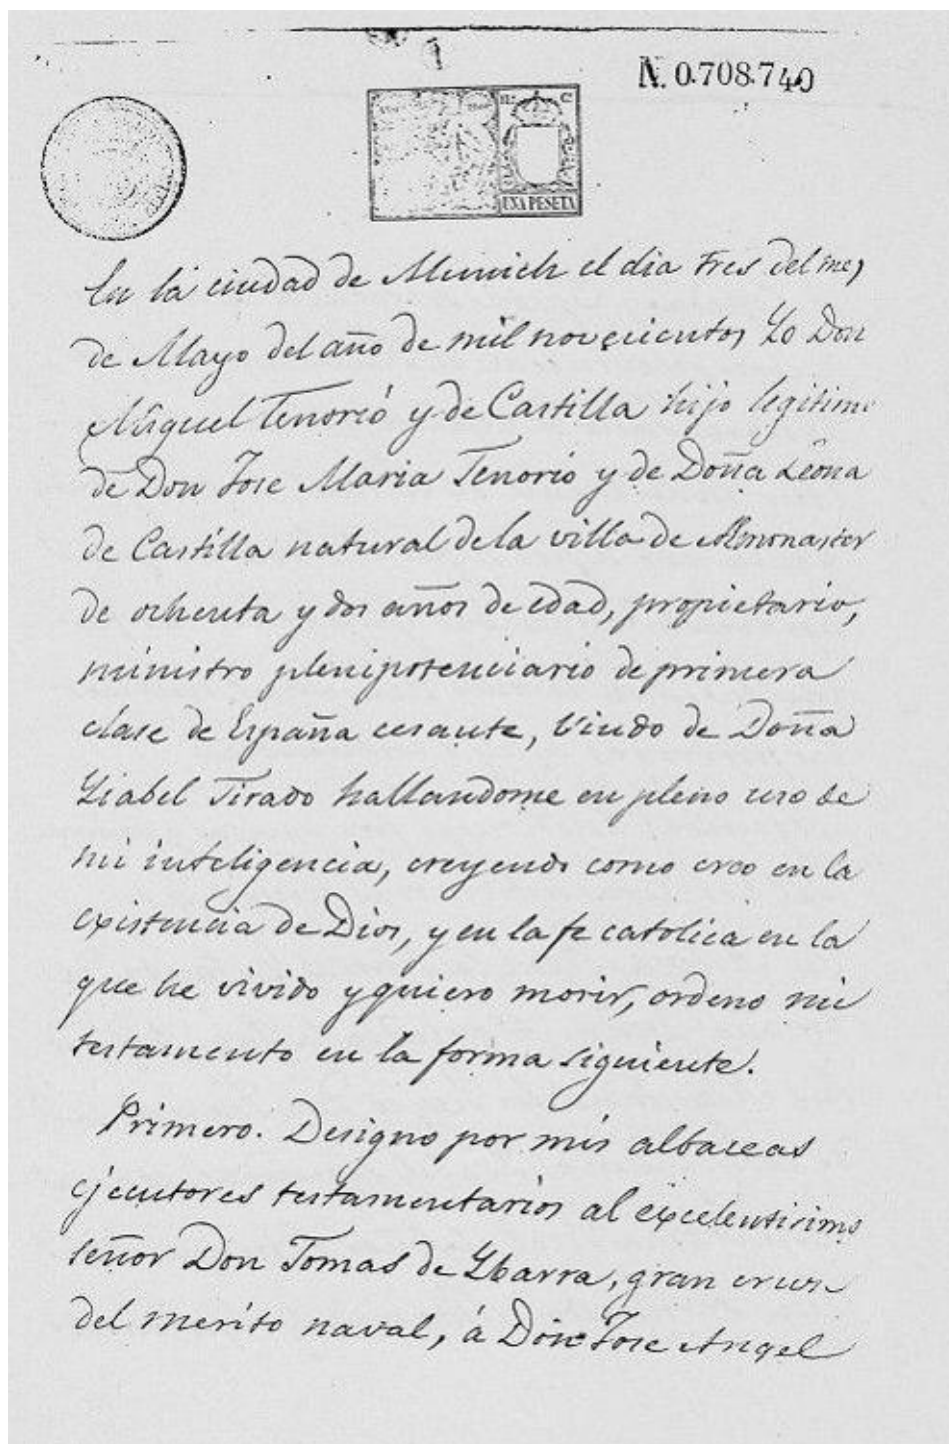 N. 0.708.740
UNA PESETA
En la ciudad de Munich el dia tres del mes
de Mayo del año de mil novecientos Yo Don
Miguel Tenorio y de Castilla hijo legitimo
de Don Jose Maria Tenorio y de Doña Leona
de Castilla natural de la villa de Almonaster
de ochenta y dos años de edad, propietario,
ministro plenipotenciario de primera
clase de España cesante, viudo de Doña
Ysabel Tirado hallandome en pleno uso de
mi inteligencia, creyendo como creo en la
existencia de Dios, y en la fe catolica en la
que he vivido y quiero morir, ordeno mi
testamento en la forma siguiente.
Primero. Designo por mis albaceas
ejecutores testamentarios al excelentisimo
señor Don Tomas de Ybarra, gran cruz
del merito naval, á Don Jose Angel